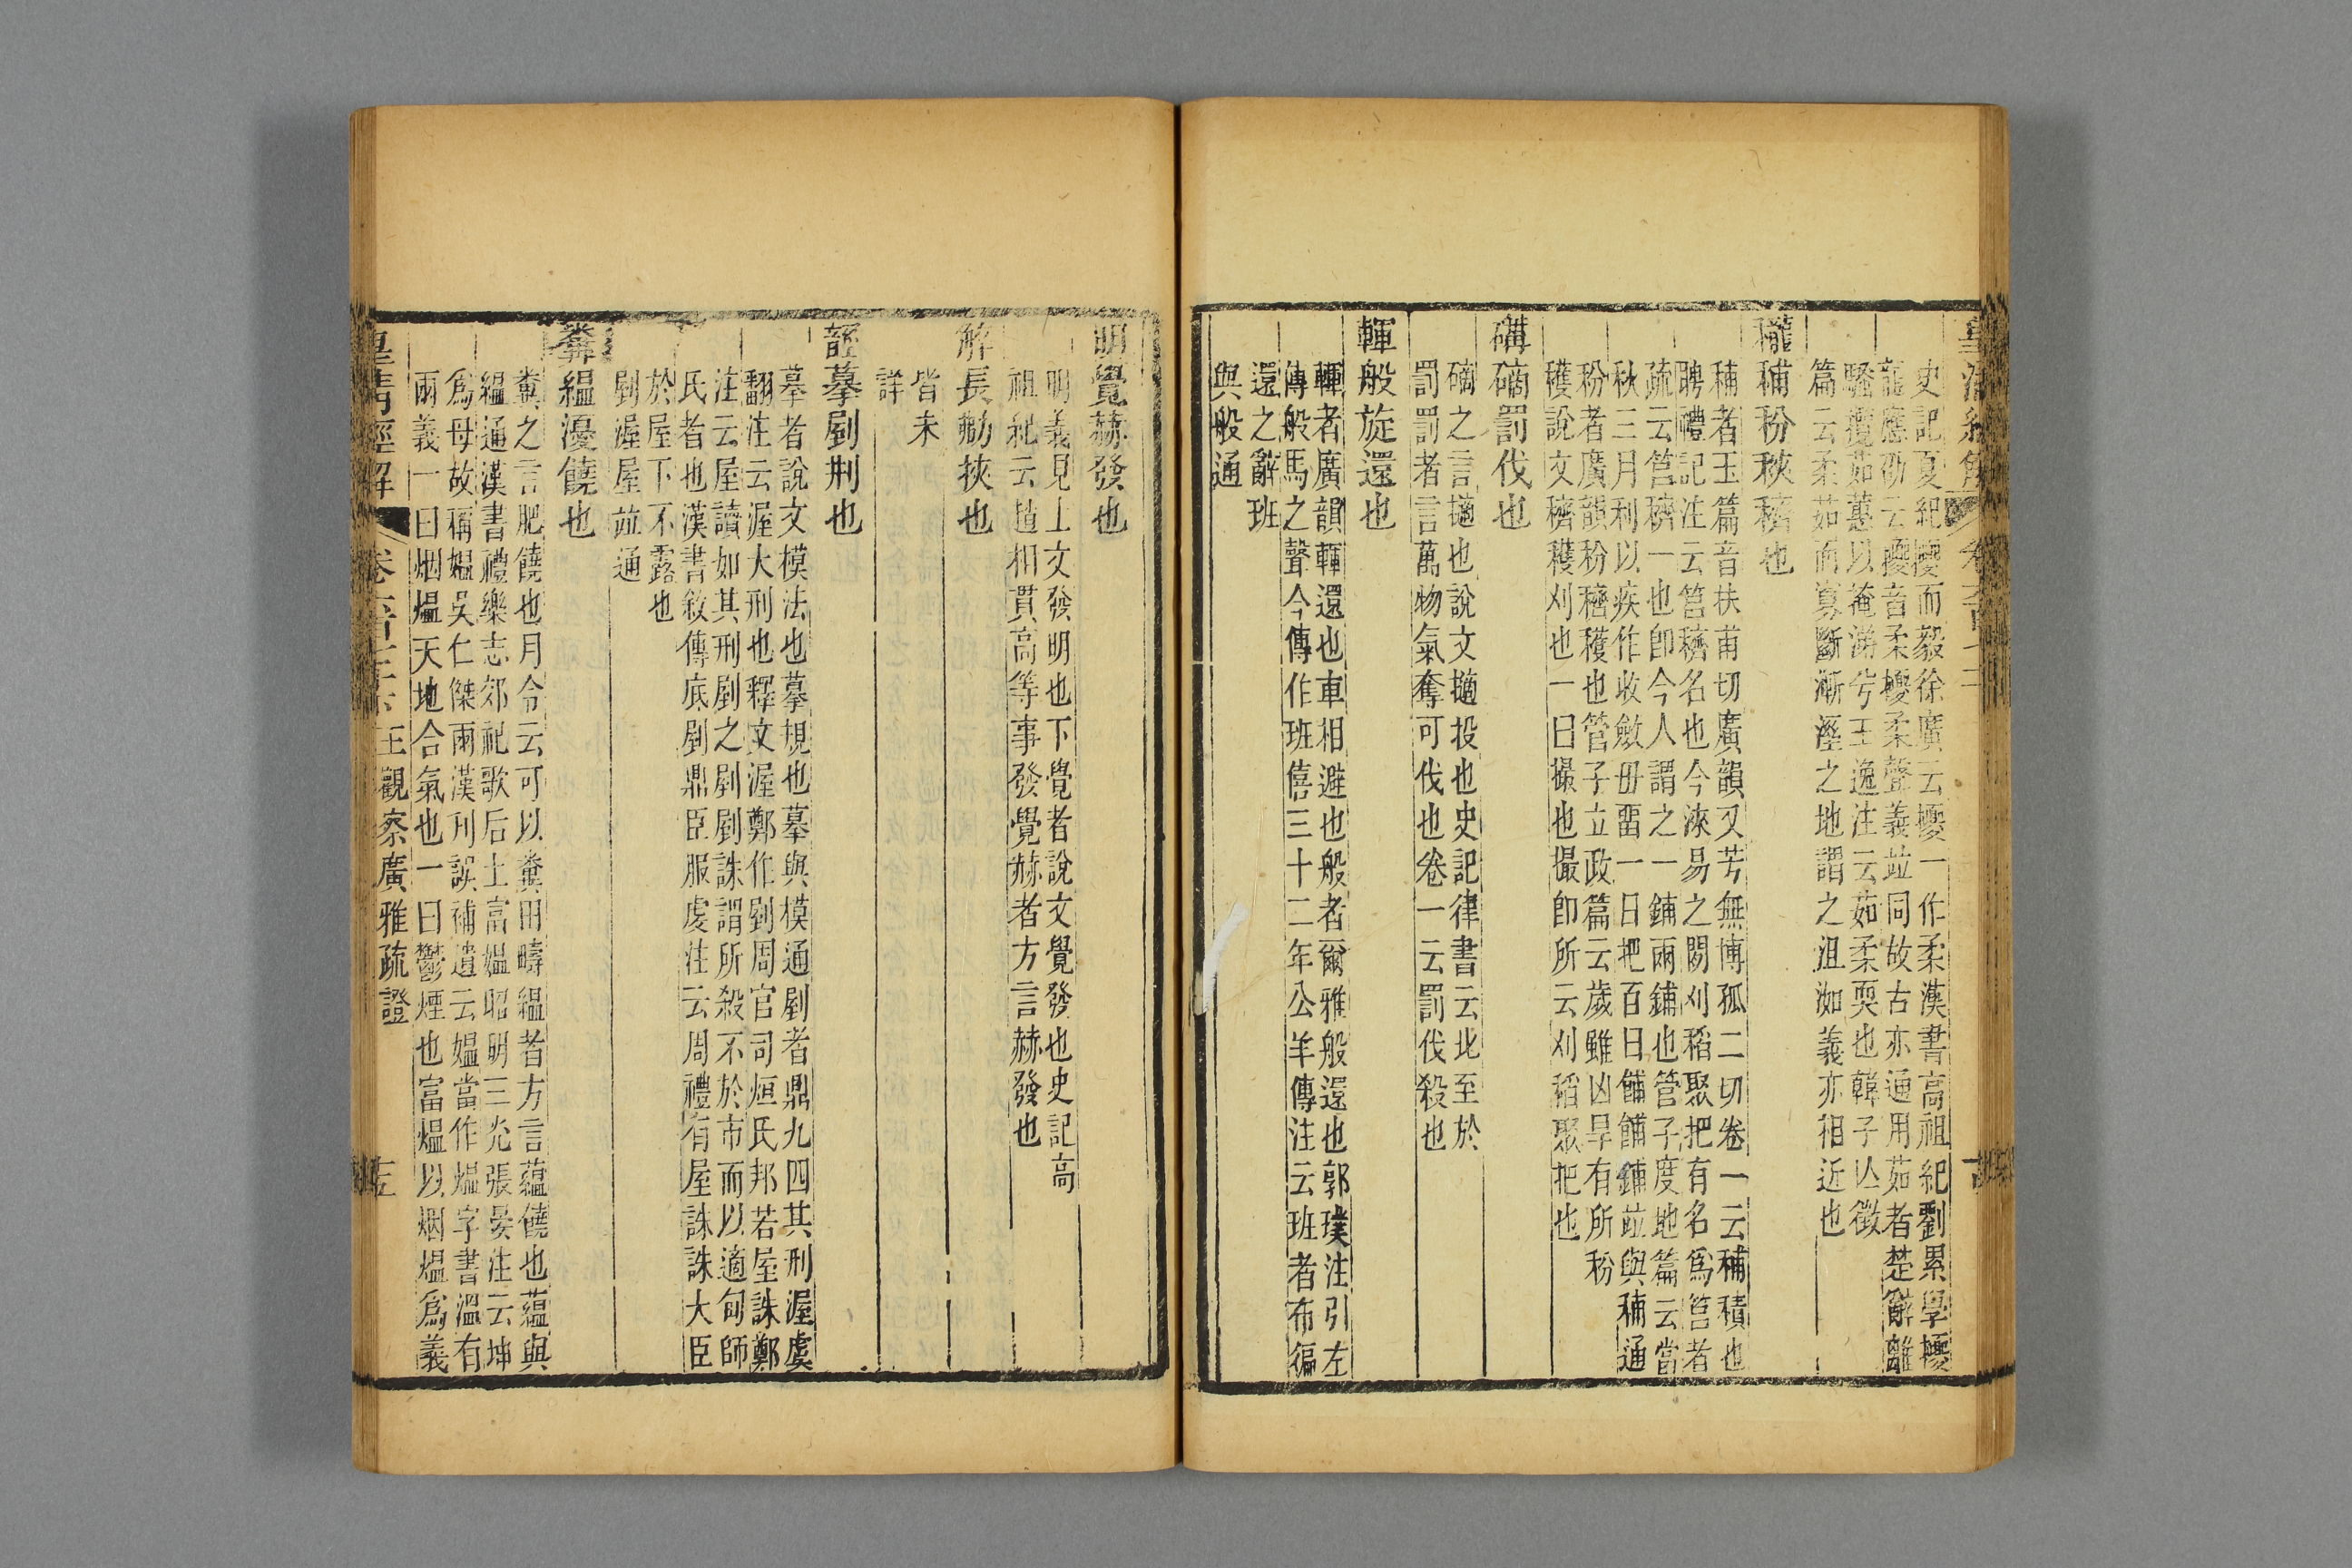 皇清經解
史記夏紀擾而毅徐廣云擾一作柔漢書高祖紀劉累學擾
龍應劭云擾音柔擾柔聲義竝同故古亦通用茹者楚辭離
騷攬茹蕙以掩涕兮王逸注云茹柔耎也韓子亾徵
篇云柔茹而寡斷漸溼之地謂之沮洳義亦相近也
秜秿秎穧也
秿者玉篇音扶甫切廣韻又芳無博孤二切卷一云秿積也
聘禮記注云筥穧名也今淶易之閒刈稻聚把有名爲筥者
疏云筥穧一也卽今人謂之一鋪兩鋪也管子度地篇云當
秋三月利以疾作收斂毋留一日把百日餔餔鋪竝與秿通
秎者廣韻秎穧穫也管子立政篇云歲雖凶旱有所秎
穫說文穧穫刈也一曰撮也撮卽所云刈稻聚把也
碡罰伐也
之言擿也說文擿投也史記律書云北至於
罰罰者言萬物氣奪可伐也卷一云罰伐殺也
軍般旋還也
者廣韻還也車相避也般者爾雅般還也郭璞注引左
傳般馬之聲今傳作班僖三十二年公羊傳注云班者布徧
還之辭班
與般通
明覺赫發也
明義見上文發明也下覺者說文覺發也史記高
祖紀云趙相貫高等事發覺赫者方言赫發也
解長勑挾也
皆未
詳
誙摹剭刑也
摹者說文模法也摹規也摹與模通剭者鼎九四其刑渥虞
翻注云渥大刑也釋文渥鄭作剭周官司烜氏邦若屋誅鄭
注云屋讀如其刑剭之剭剭誅謂所殺不於市而以適甸師
氏者也漢書敘傳底剭鼎臣服虔注云周禮有屋誅誅大臣
於屋下不露也
剭渥屋竝通
糞縕漫饒也
糞之言肥饒也月令云可以糞田疇縕者方言蘊饒也蘊與
縕通漢書禮樂志郊祀歌后土富媼昭明三光張晏注云坤
爲母故稱媼吳仁傑兩漢刊誤補遺云媼當作熅字書溫有
兩義一曰烟熅天地合氣也一曰鬱煙也富熅以烟熅爲義
皇清經解 王觀察廣雅疏證